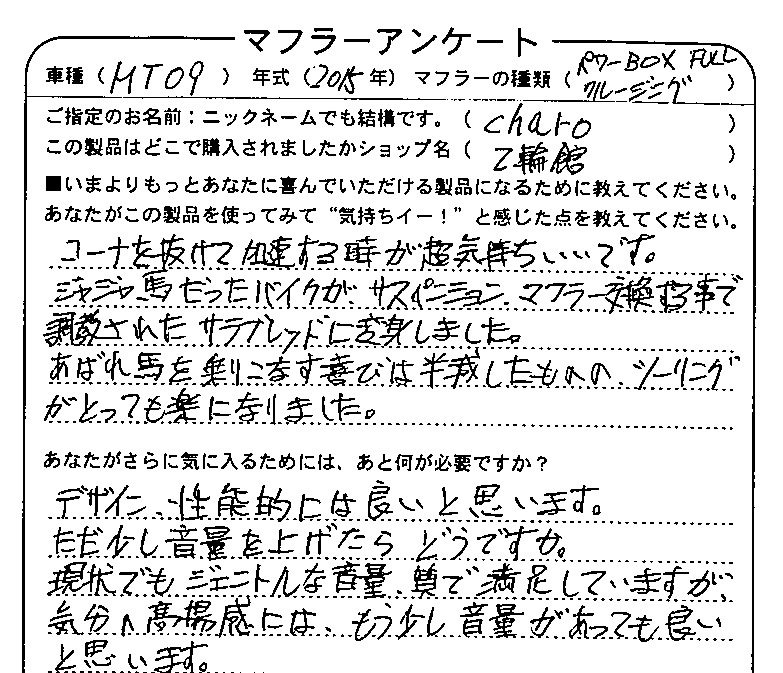 マフラーアンケート
車種（MT09）年式（2015年）マフラーの種類（パワーBOX FULL
クルージング）
ご指定のお名前：ニックネームでも結構です。（charo）
この製品はどこで購入されましたかショップ名（2輪館）
■いまよりもっとあなたに喜んでいただける製品になるために教えてください。
あなたがこの製品を使ってみて“気持ちイー！”と感じた点を教えてください。
コーナを抜けて加速する時が超気持ちいいです。
ジャジャ馬だったバイクが、サスペンション、マフラー交換する事で
調教されたサラブレッドに変身しました。
あばれ馬を乗りこなす喜びは半減したものの、ツーリング
がとっても楽になりました。
あなたがさらに気に入るためには、あと何が必要ですか？
デザイン、性能的には良いと思います。
ただ少し音量を上げたらどうですか。
現状でもジェントルな音量、質で満足していますが、
気分の高揚感には、もう少し音量があっても良い
と思います。